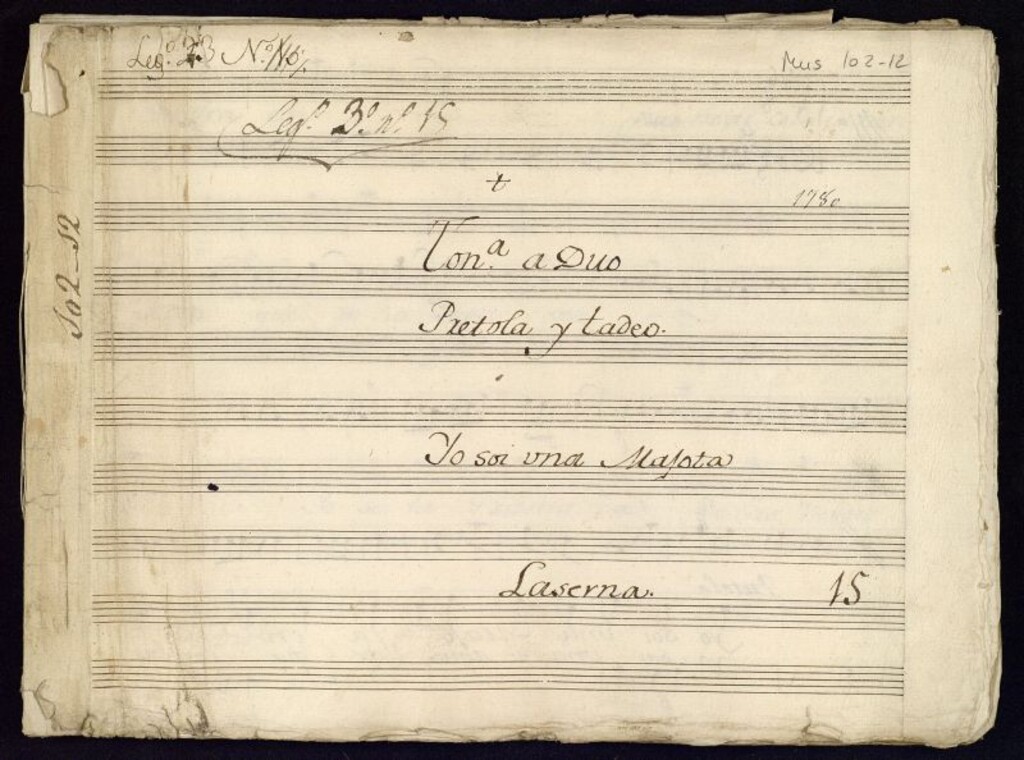 Leg.º 23 N.º
Mus 102-12
Leg.º 3.º n.º 15
1780
Ton.ª a Duo
Pretola y tadeo.
Yo soi vna Majota
Laserna. 15
102-12